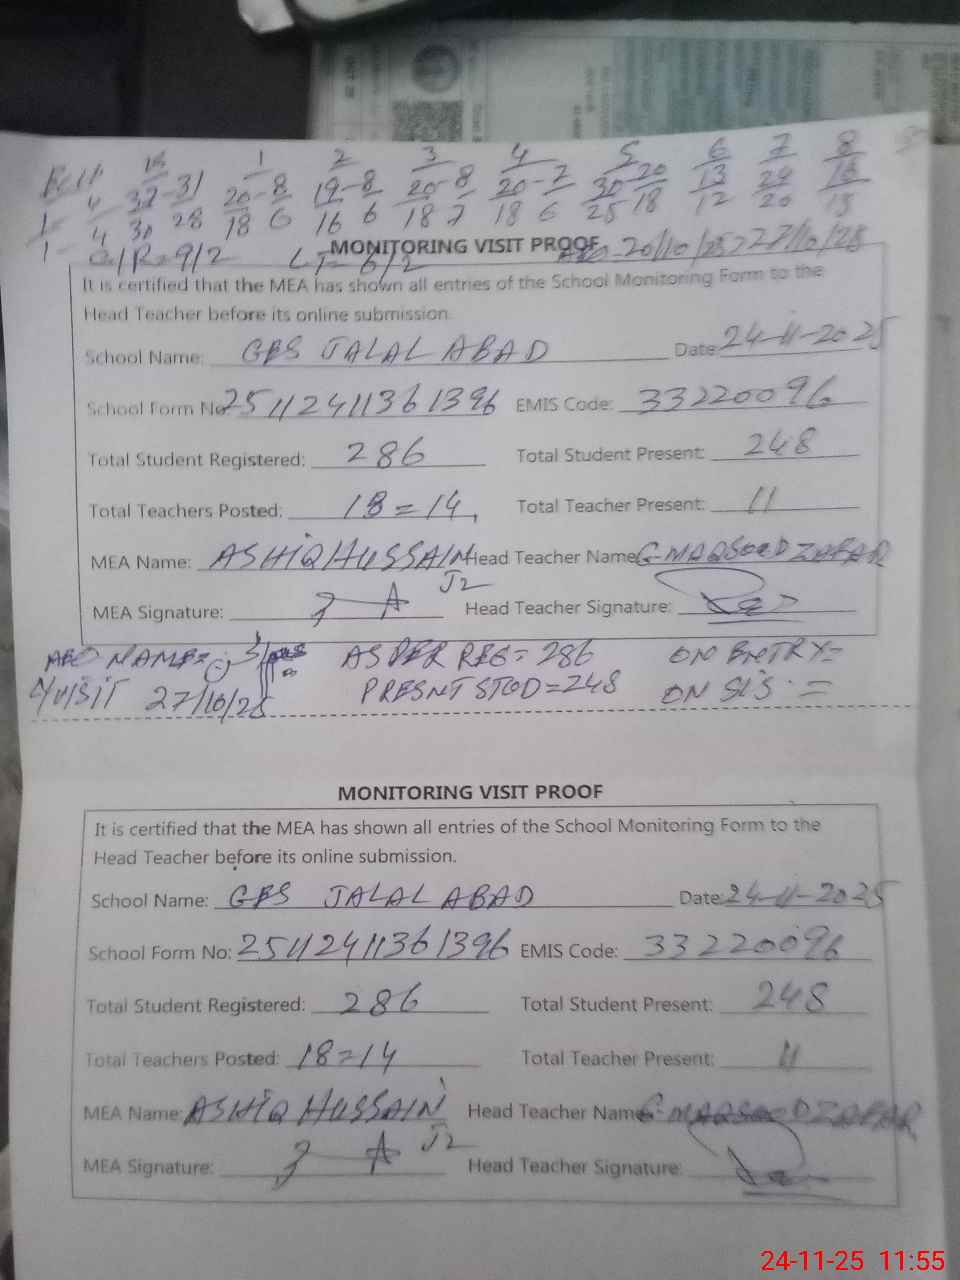 1 2 3 4 5 6 7 8
37-31 20-8 19-8 20-8 20-7 30 20 13 29 16
4 30 28 18 6 16 6 18 7 18 6 25 18 12 20 15
C/R=9/2 LT=6/2 20/10/25>27/10/25
MONITORING VISIT PROOF
It is certified that the MEA has shown all entries of the School Monitoring Form to the
Head Teacher before its online submission.
School Name: GES JALAL ABAD Date: 24-11-2025
School Form No 25112411361396 EMIS Code: 33220096
Total Student Registered: 286 Total Student Present: 248
Total Teachers Posted: 18=14 Total Teacher Present: 11
MEA Name: ASHIQ HUSSAIN Head Teacher Name G-MAQSOOD ZAFAR
J2
MEA Signature: Head Teacher Signature:
NAME= AS PER REG= 286 ON ENTRY=
VISIT 27/10/25 PRESNT STOD=248 ON SIS =
MONITORING VISIT PROOF
It is certified that the MEA has shown all entries of the School Monitoring Form to the
Head Teacher before its online submission.
School Name: GES JALAL ABAD Date: 24-11-2025
School Form No: 25112411361396 EMIS Code: 33220096
Total Student Registered: 286 Total Student Present: 248
Total Teachers Posted: 18=14 Total Teacher Present: 11
MEA Name: ASHIQ HUSSAIN Head Teacher Name G-MAQSOOD ZAFAR
J2
MEA Signature: Head Teacher Signature:
24-11-25 11:55